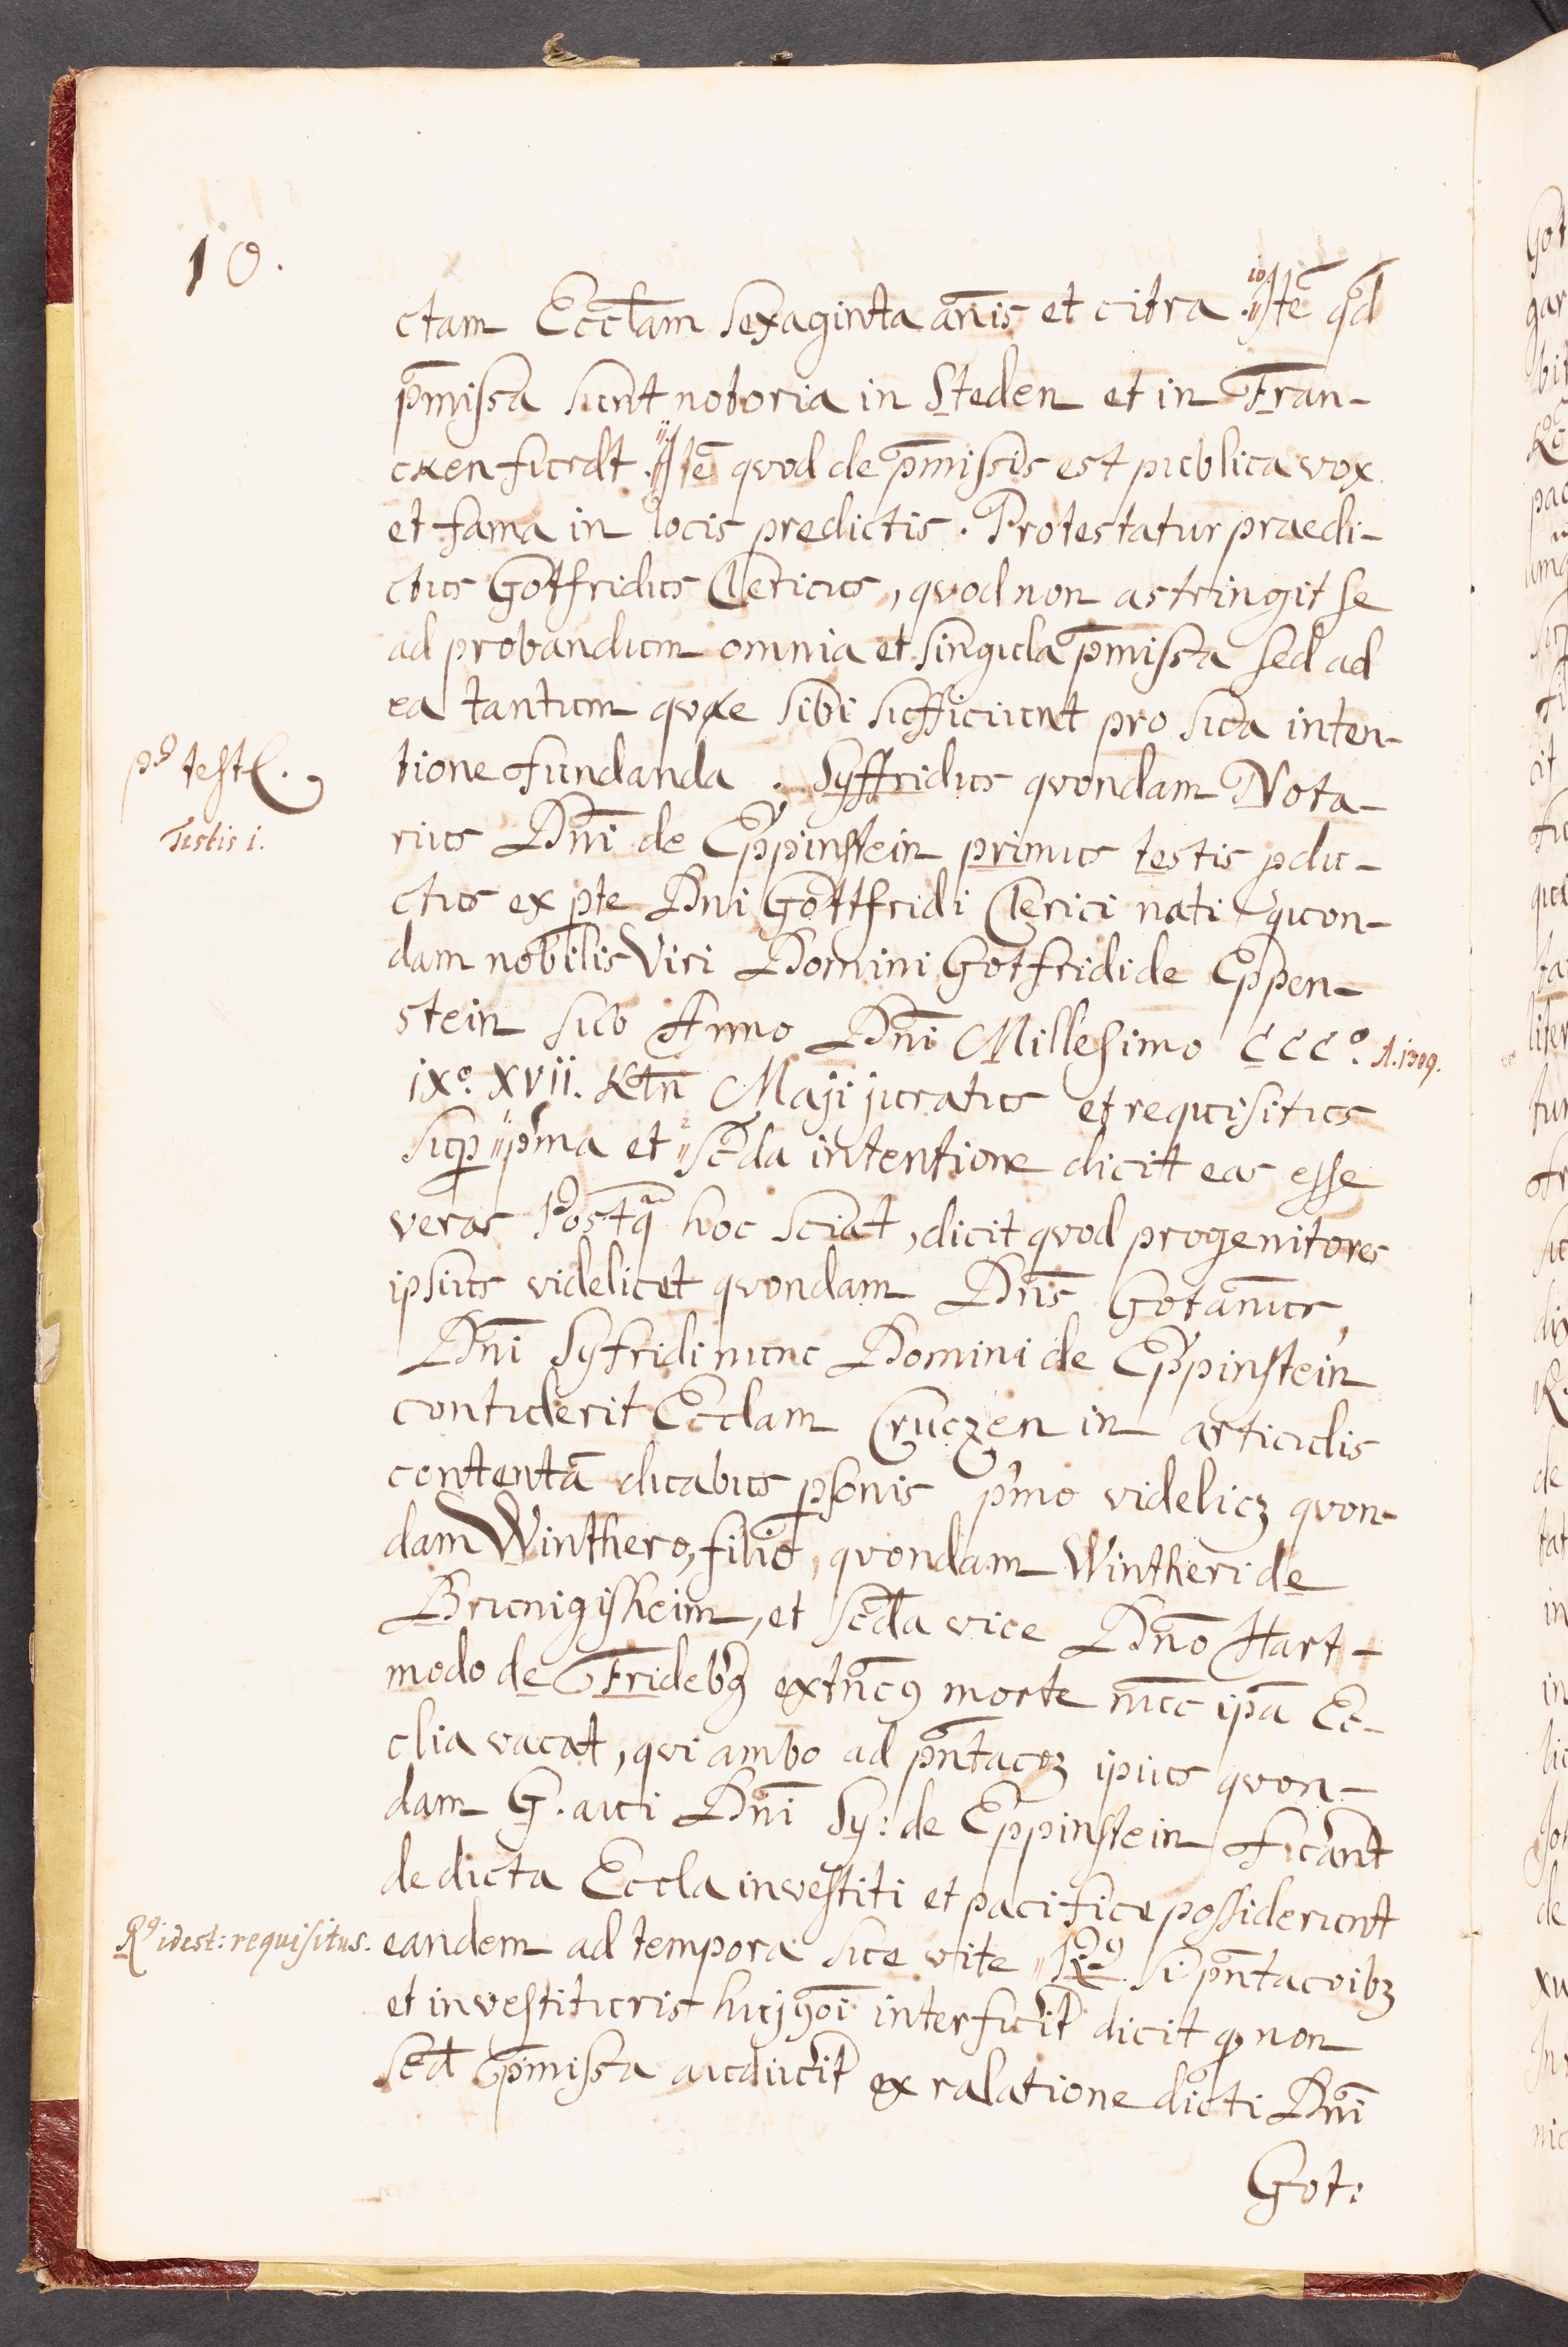 10.
ctam Eccl̄am sexaginta an̄is et citra. 10. Itē qd̄
p̄missa sunt notoria in Steden et in Fran-
ckenfurdt. 11 Itē quod de p̄missis est publica vox
et fama in locis predictis. Protestatur praedi-
ctus Gotfridus Clericus, quod non astringit se
ad probandum omnia et singula p̄missa sed ad
ea tantum quae sibi sufficiunt pro sua inten-
tione fundanda. Syffridus quondam Nota-
p9 test.
Testis 1.
rius Dn̄i de Eppinstein primus testis pdu-
ctus ex pte Dni Gottfridi Clerici nati quon-
dam nobilis Viri Domini Gotfridi de Eppen-
stein sub Anno Dn̄i Millesimo ccc°. A. 1309.
ix°. xvii. Kln̄ Maji juratus et requisitus
sup p̄ma et 2 sc̄da intentione dicit eas esse
veras Postq̄ hoc sciat, dicit quod progenitores
ipsius videlicet quondam Dn̄s Gotān̄us
Dn̄i Syfridi nunc Domini de Eppinstein
contulerit Ecclam Cruczen in articulis
contentā duabus psonis p̄mo videlicz quon-
dam Winthero, filio, quondam Wintheri de
Brunigisheim, et sc̄da vice Dn̄o Hart-
modo de Frideb̄g ex morte nūc ip̄a Ec-
clia vacat, qui ambo ad p̄ntacoz ipius quon-
dam G. aui Dn̄i Sy: de Eppinstein fuer̄ant
de dicta Eccla investiti et pacifice possiderunt
R9 idest: requisitus.
eandem ad tempora sue vite R9 si p̄ntacoibz
et investituris huj9oī interfuit dicit q non
sed p̄missa audiuit ex ralatione dicti Dn̄i
Got: